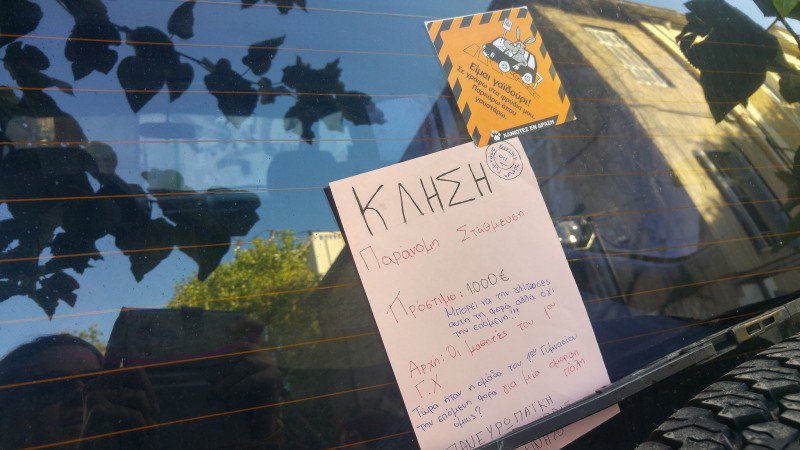 Είμαι γαϊδούρι!
Σε γράφω στα φρύδια μου,
Παρκάρω όπου
γουστάρω.
ΧΑΝΙΩΤΕΣ ΕΝ ΔΡΑΣΗ
ΚΛΗΣΗ
Παράνομη Στάθμευση
Πρόστιμο: 1.000€
Μπορεί να την γλίτωσες
αυτή τη φορά αλλά όχι
την επόμενη!!!
Αρχή: Οι μαθητές του 1ου
Γ.Χ
Τώρα ήταν η ομάδα του 1ου Γυμνασίου
την επόμενη φορά για μία όμορφη
όμως? πόλη
ΠΑΝΕΥΡΩΠΑΪΚΗ